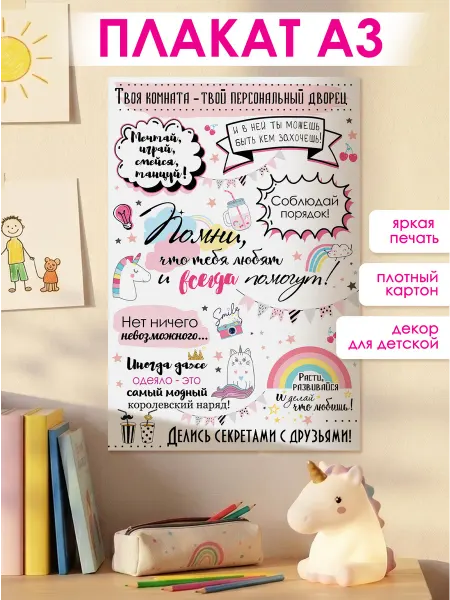 ПЛАКАТ А3
Твоя комната - твой персональный дворец
Мечтай,
играй,
смейся,
танцуй!
И в ней ты можешь
быть кем захочешь!
Соблюдай
порядок!
Помни,
что тебя любят
и всегда помогут!
Smile
Нет ничего
невозможного...
Иногда даже
одеяло - это
самый модный
королевский наряд!
Расти,
развивайся
и делай
что любишь!
Делись секретами с друзьями!
яркая
печать
плотный
картон
декор
для детской